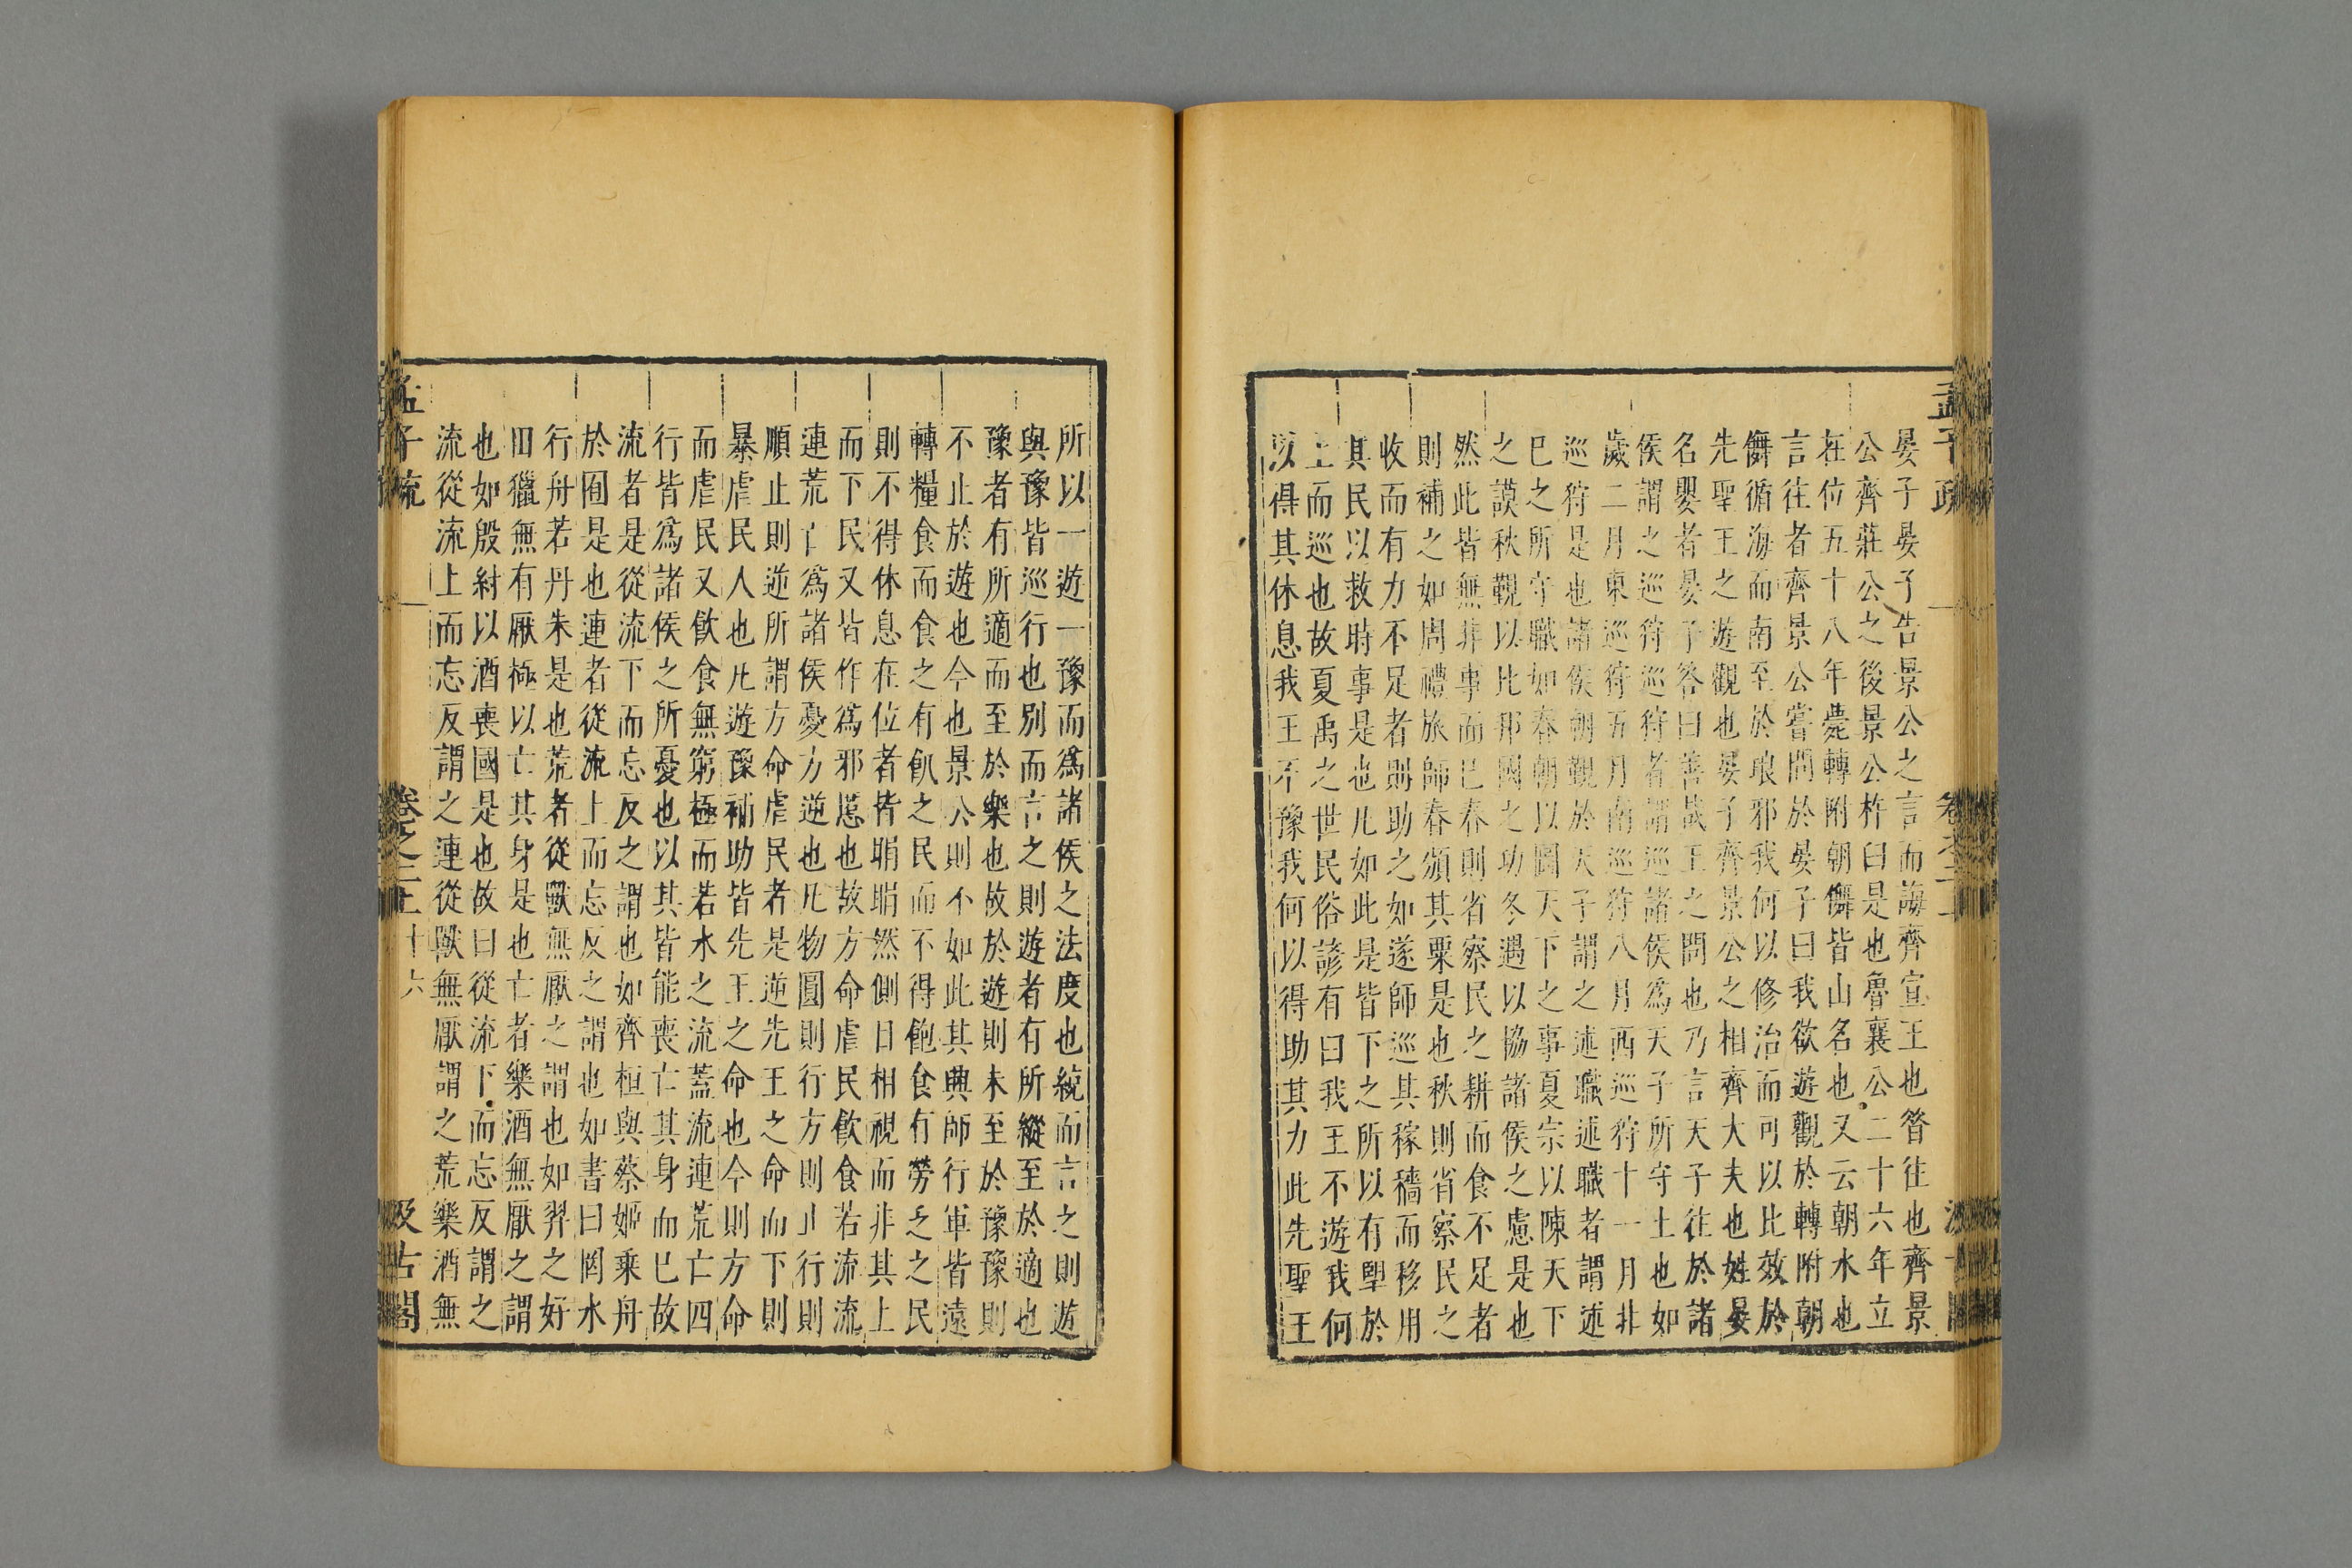 晏子晏子告景公之言而誨齊宣王也昝往也齊景
公齊莊公之後景公杵臼是也魯襄公二十六年立
在位五十八年薨轉附朝儛皆山名也又云朝水也
言往者齊景公嘗問於晏子曰我欲遊觀於轉附朝
儛循海而南至於琅邪我何以修治而可以比效於
先聖王之遊觀也晏子齊景公之相齊大夫也姓晏
名嬰者晏子答曰善哉王之問也乃言天子往於諸
侯謂之巡狩巡狩者謂巡諸侯爲天子所守土也如
歲二月東巡狩五月南巡狩八月西巡狩十一月非
巡狩是也諸侯朝覲於天子謂之述職述職者謂述
巳之所守職如春朝以圖天下之事夏宗以陳天下
之謨秋覲以比邦國之功冬遇以協諸侯之慮是也
然此皆無非事而巳春則省察民之耕而食不足者
則補之如周禮旅師春頒其粟是也秋則省察民之
收而有力不足者則助之如遂師巡其稼穡而移用
其民以救時事是也凡如此是皆下之所以有望於
上而巡也故夏禹之世民俗諺有曰我王不遊我何
以得其休息我王不豫我何以得助其力此先聖王
所以一遊一豫而爲諸侯之法度也統而言之則遊
與豫皆巡行也別而言之則遊者有所縱至於適也
豫者有所適而至於樂也故於遊則未至於豫豫則
不止於遊也今也景公則不如此其興師行軍皆遠
轉糧食而食之有飢之民而不得飽食有勞乏之民
則不得休息在位者皆睊睊然側目相視而非其上
而下民又皆作爲邪慝也故方命虐民飲食若流流
連荒亡爲諸侯憂方逆也凡物圓則行方則止行則
順止則逆所謂方命虐民者是逆先王之命而下則
暴虐民人也凡遊豫補助皆先王之命也今則方命
而虐民又飲食無窮極而若水之流蓋流連荒亡四
行皆爲諸侯之所憂也以其皆能喪亡其身而已故
流者是從流下而忘反之謂也如齊桓與蔡姬乘舟
於囿是也連者從流上而忘反之謂也如書曰罔水
行舟若丹朱是也荒者從獸無厭之謂也如羿之好
田獵無有厭極以亡其身是也亡者樂酒無厭之謂
也如殷紂以酒喪國是也故曰從流下而忘反謂之
流從流上而忘反謂之連從獸無厭謂之荒樂酒無
孟子疏 卷之二上 十六 汲古閣